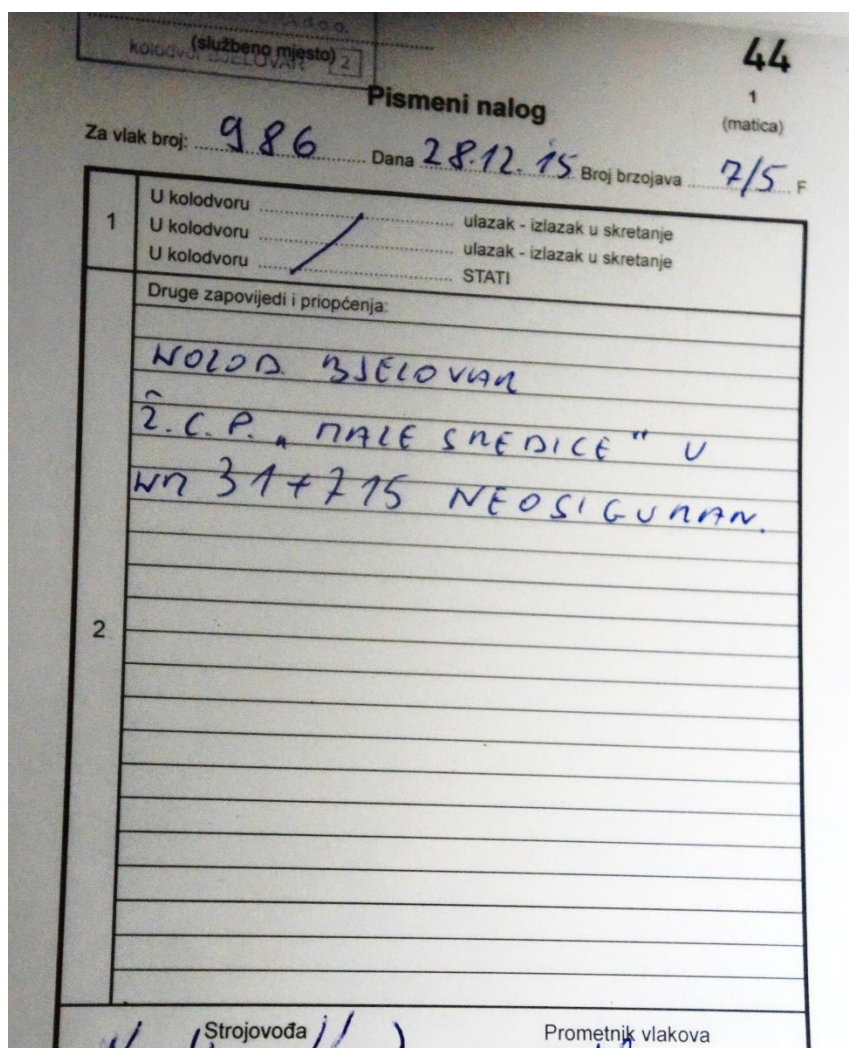 d.o.o.
(službeno mjesto)
kolodvor BJELOVAR 2
44
1
(matica)
Pismeni nalog
Za vlak broj: 986 Dana 28.12.15 Broj brzojava 7/5 F
1
U kolodvoru ulazak - izlazak u skretanje
U kolodvoru ulazak - izlazak u skretanje
U kolodvoru STATI
2
Druge zapovijedi i priopćenja:
KOLOD. BJELOVAR
Ž.C.P. „MALE SREDICE" U
KM 31+715 NEOSIGURAN.
Strojovođa
Prometnik vlakova